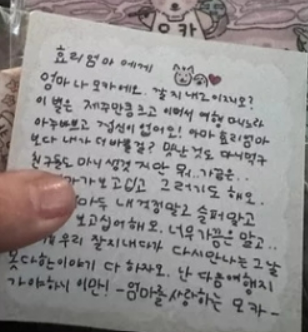 모카
효리엄마 에게
엄마 나 모카에요. 잘 지내고 있지요?
이 별은 제주만큼 크고 이뻐서 여행 다니느라
아주 바쁘고 정신이 없어요! 아마 효리엄마
보다 내가 더 바쁠걸? 맛난것도 마니 먹구
친구들도 마니 생겼지만 뭐.. 가끔..
가 보고싶고 그러기도 해요.
마두 내 걱정말고 슬퍼말고
보고싶어해요. 너무 가끔은 말고..
우리 잘 지내다가 다시 만나는 그날
못다한 이야기 다 하자요. 난 다음 여행지
가야하니 이만! - 엄마를 사랑하는 모카 -